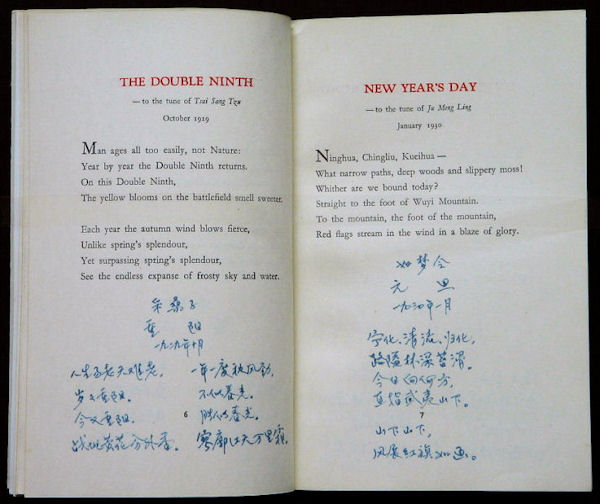 THE DOUBLE NINTH
—to the tune of Tsai Sang Tzu
October 1919
Man ages all too easily, not Nature:
Year by year the Double Ninth returns.
On this Double Ninth,
The yellow blooms on the battlefield smell sweeter.
Each year the autumn wind blows fierce,
Unlike spring's splendour,
Yet surpassing spring's splendour,
See the endless expanse of frosty sky and water.
采桑子
重 阳
一九二九年十月
人生易老天难老,
岁岁重阳。
今又重阳,
战地黄花分外香。
一年一度秋风劲,
不似春光。
胜似春光,
寥廓江天万里霜
6
NEW YEAR'S DAY
—to the tune of Ju Meng Ling
January 1930
Ninghua, Chingliu, Kueihua—
What narrow paths, deep woods and slippery moss!
Whither are we bound today?
Straight to the foot of Wuyi Mountain.
To the mountain, the foot of the mountain,
Red flags stream in the wind in a blaze of glory.
如梦令
元 旦
一九三〇年一月
宁化、清流、归化,
路隘林深苔滑。
今日向何方,
直指武夷山下。
山下山下,
风展红旗如画。
7